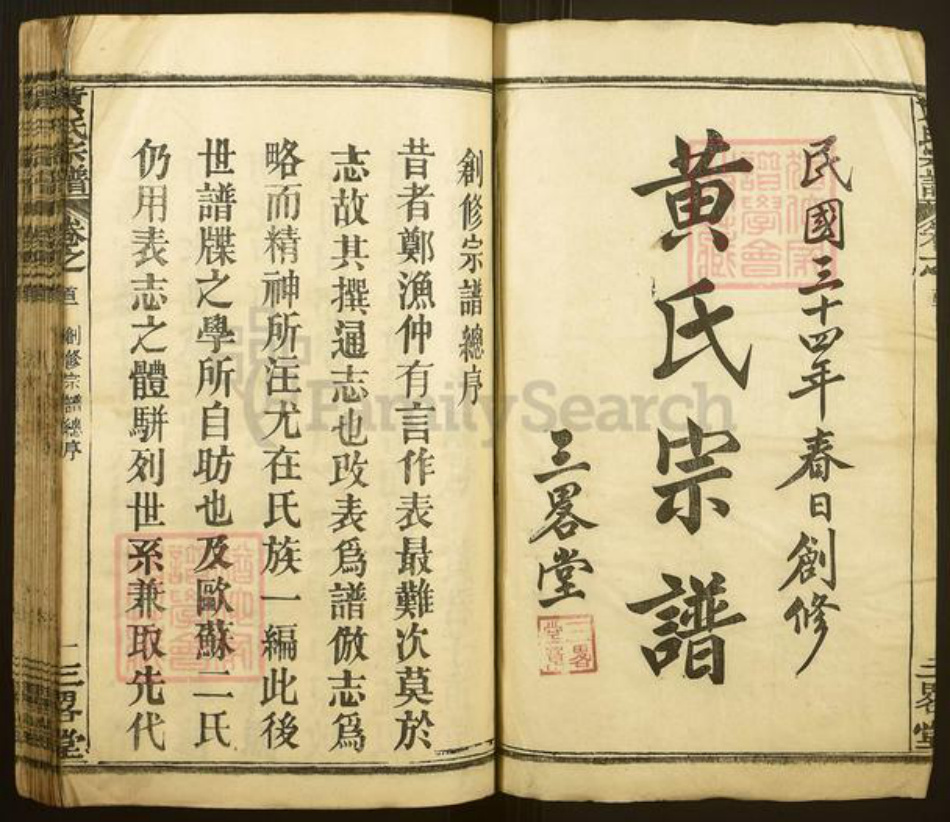 民國三十四年春日創修
黃氏宗譜
三畧堂
創修宗譜總序
昔者鄭漁仲有言作表最難次莫於
志故其撰通志也改表爲譜倣志爲
略而精神所注尤在氏族一編此後
世譜牒之學所自昉也及歐蘇二氏
仍用表志之體駢列世系兼取先代
黃氏宗譜
卷之
首
創修宗譜總序
三畧堂
三畧堂
FamilySearch